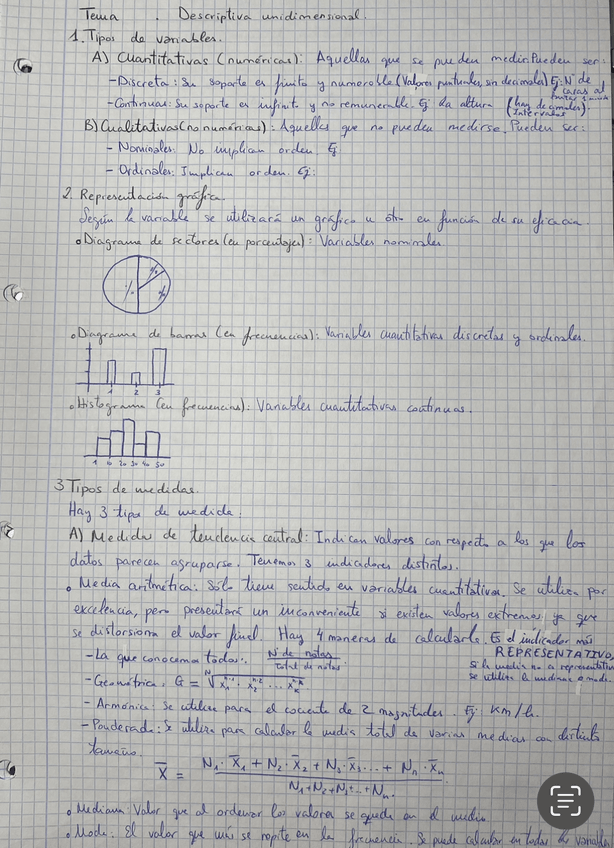 Tema . Descriptiva unidimensional.
1. Tipos de variables.
A) Cuantitativas (numéricas): Aquellas que se pueden medir. Pueden ser:
- Discreta: Su soporte es finito y numerable (Valores puntuales, sin decimales) Ej: Nº de
caras al
- Continuas: Su soporte es infinito y no remunerable. Ej: La altura (hay decimales).
Intervalos
B) Cualitativas (no numéricas): Aquellas que no pueden medirse. Pueden ser:
- Nominales: No implican orden. Ej
- Ordinales: Implican orden. Ej:
2. Representación gráfica.
Según la variable se utilizará un gráfico u otro en función de su eficacia.
• Diagrama de sectores (en porcentajes): Variables nominales.
% % %
• Diagrama de barras (en frecuencias): Variables cuantitativas discretas y ordinales.
1 2 3
• Histograma (en frecuencias): Variables cuantitativas continuas.
1 10 20 30 40 50
3 Tipos de medidas.
Hay 3 tipos de medida:
A) Medidas de tendencia central: Indican valores con respecto a los que los
datos parecen agruparse. Tenemos 3 indicadores distintos.
• Media aritmética: Sólo tiene sentido en variables cuantitativas. Se utiliza por
excelencia, pero presentará un inconveniente si existen valores extremos, ya que
se distorsiona el valor final. Hay 4 maneras de calcularla. Es el indicador más
REPRESENTATIVO,
- La que conocemos todos: Nº de notas / Total de notas
si la media no es representativa
se utiliza la mediana o moda.
- Geométrica. G =
- Armónica: Se utiliza para el cociente de 2 magnitudes. Ej: Km/h.
- Ponderada: Se utiliza para calcular la media total de varias medias con distinto
tamaño.
X̅ = N₁·X̅₁ + N₂·X̅₂ + N₃·X̅₃... + Nₙ·X̅ₙ / N₁+N₂+N₃+...Nₙ.
• Mediana: Valor que al ordenar los valores se queda en el medio.
• Moda: El valor que más se repite en la frecuencia. Se puede calcular en todas las variables